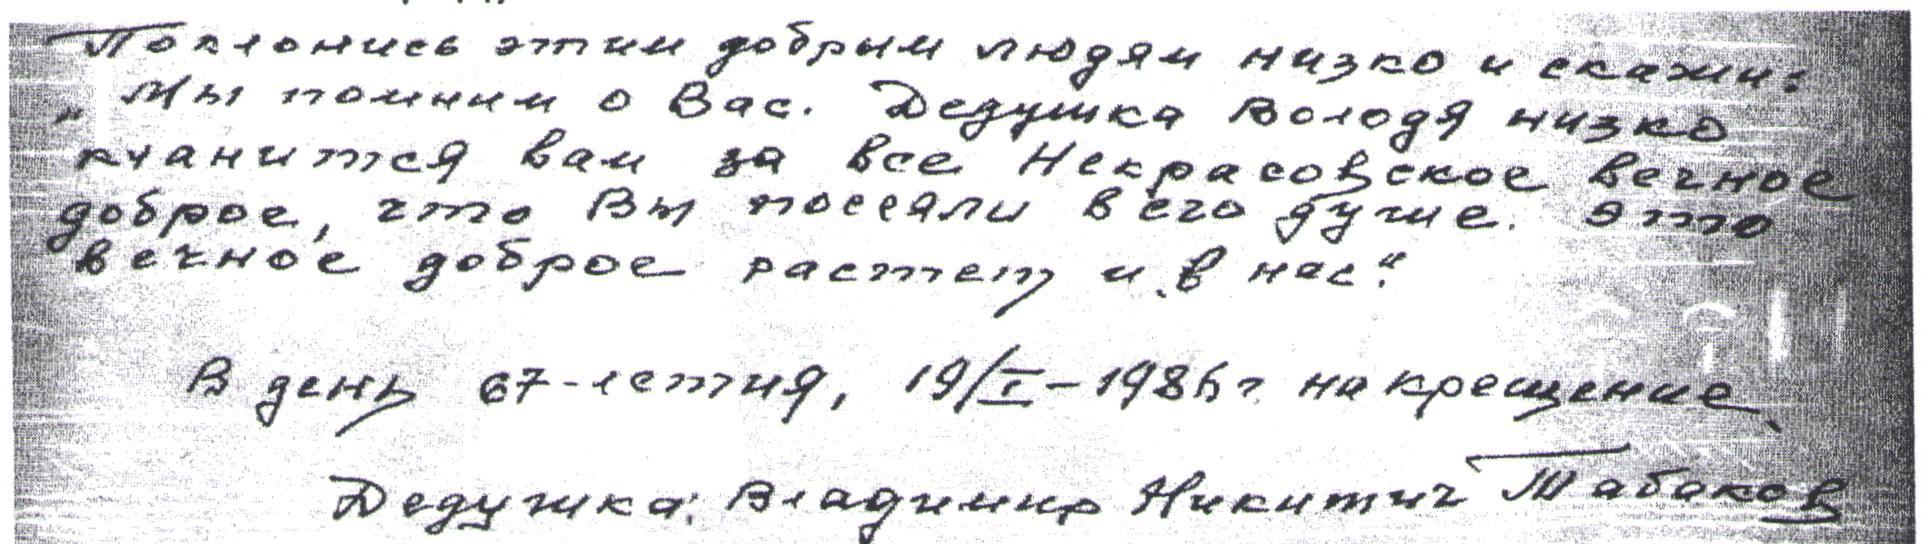 Поклонись этим добрым людям низко и скажи:
„Мы помним о Вас. Дедушка Володя низко
кланится вам за все Некрасовское вечное
доброе, что Вы посеяли в его душе. Это
вечное доброе растет и в нас“.
В день 67-летия, 19/I-1986 г. на крещение
Дедушка: Владимир Никитич Табаков